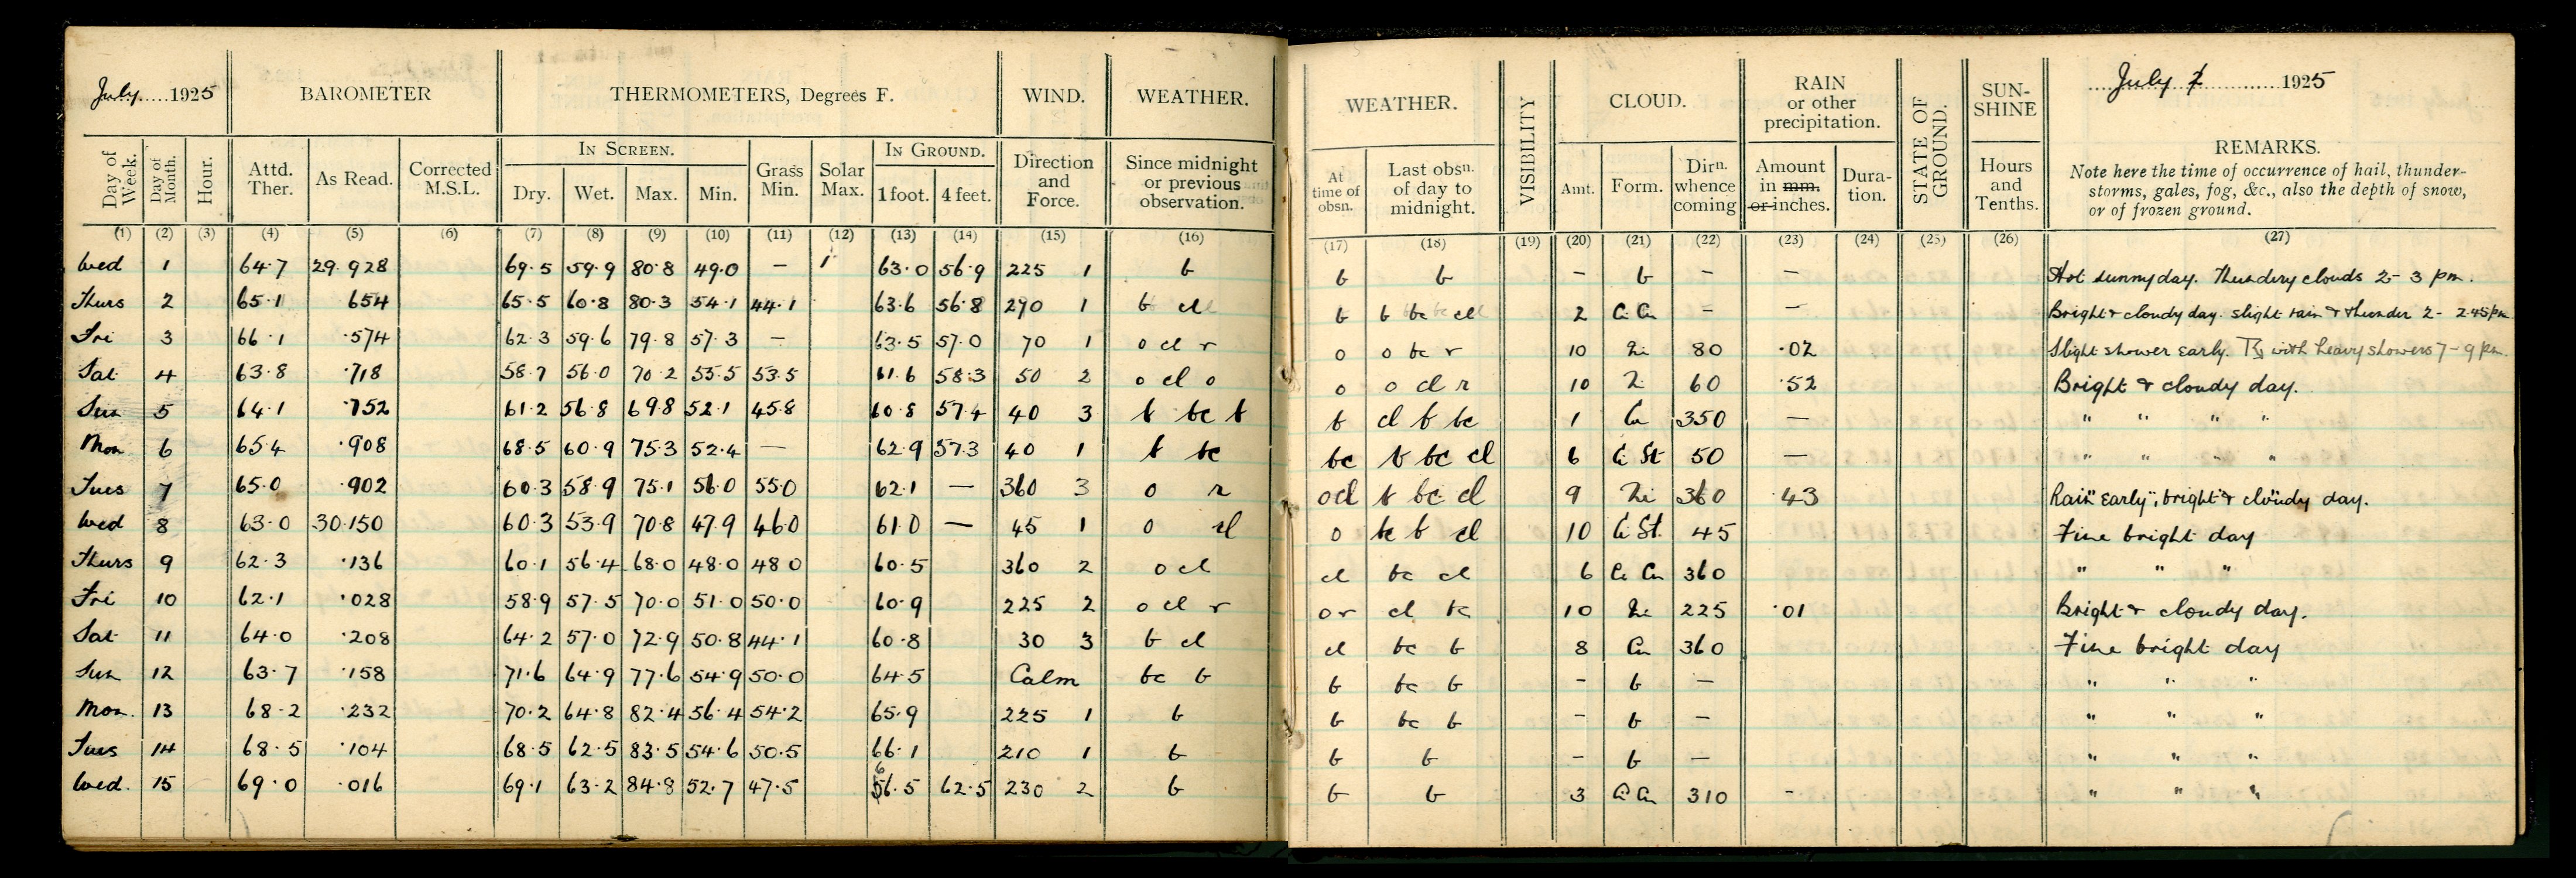 July 1925 BAROMETER THERMOMETERS, Degrees F. WIND. WEATHER.
Day of Week. Day of Month. Hour. Attd. Ther. As Read. Corrected M.S.L. IN SCREEN. Dry. Wet. Max. Min. Grass Min. Solar Max. IN GROUND. 1 foot. 4 feet. Direction and Force. Since midnight or previous observation.
(1) (2) (3) (4) (5) (6) (7) (8) (9) (10) (11) (12) (13) (14) (15) (16)
Wed 1 64.7 29.928 69.5 59.9 80.8 49.0 — 63.0 56.9 225 1 b
Thurs 2 65.1 654 65.5 60.8 80.3 54.1 44.1 63.6 56.8 290 1 b cl
Fri 3 66.1 .574 62.3 59.6 79.8 57.3 — 63.5 57.0 70 1 o cl r
Sat 4 63.8 .718 58.7 56.0 70.2 55.5 53.5 61.6 58.3 50 2 o cl o
Sun 5 64.1 .752 61.2 56.8 69.8 52.1 45.8 60.8 57.4 40 3 b bc b
Mon 6 65.4 .908 68.5 60.9 75.3 52.4 — 62.9 57.3 40 1 b bc
Tues 7 65.0 .902 60.3 58.9 75.1 56.0 55.0 62.1 — 360 3 o r
Wed 8 63.0 30.150 60.3 53.9 70.8 47.9 46.0 61.0 — 45 1 o cl
Thurs 9 62.3 .136 60.1 56.4 68.0 48.0 48.0 60.5 360 2 o cl
Fri 10 62.1 .028 58.9 57.5 70.0 51.0 50.0 60.9 225 2 o cl r
Sat 11 64.0 .208 64.2 57.0 72.9 50.8 44.1 60.8 30 3 b cl
Sun 12 63.7 .158 71.6 64.9 77.6 54.9 50.0 64.5 Calm bc b
Mon. 13 68.2 .232 70.2 64.8 82.4 56.4 54.2 65.9 225 1 b
Tues 14 68.5 .104 68.5 62.5 83.5 54.6 50.5 66.1 210 1 b
Wed. 15 69.0 .016 69.1 63.2 84.8 52.7 47.5 66.5 62.5 230 2 b
WEATHER. VISIBILITY CLOUD. RAIN or other precipitation. STATE OF GROUND. SUN-SHINE July 1925
At time of obsn. Last obsn. of day to midnight. Amt. Form. Dirn. whence coming Amount in mm. or inches. Duration. Hours and Tenths. REMARKS.
Note here the time of occurrence of hail, thunder-
storms, gales, fog, &c., also the depth of snow,
or of frozen ground.
(17) (18) (19) (20) (21) (22) (23) (24) (25) (26) (27)
b b – b – — Hot sunny day. Thundery clouds 2-3 pm.
b b bc cl 2 Ci Cu – — Bright & cloudy day. slight rain & thunder 2- 2.45 pm
o o bc r 10 Ni 80 .02 Slight shower early. with heavy showers 7-9 pm.
o o cl r 10 Ni 60 .52 Bright & cloudy day.
b cl b bc 1 Cu 350 — " " " "
bc b bc cl 6 Ci St 50 — " " " "
ocl b bc cl 9 Ni 360 .43 Rain early, bright & cloudy day.
o bc b cl 10 Ci St. 45 Fine bright day
cl bc cl 6 Ci Cu 360 " " "
or cl bc 10 Ni 225 .01 Bright & cloudy day.
cl bc b 8 Cu 360 Fine bright day
b bc b – b — " " "
b bc b – b — " " "
b b – b — " " "
b b 3 Ci Cu 310 - " " "